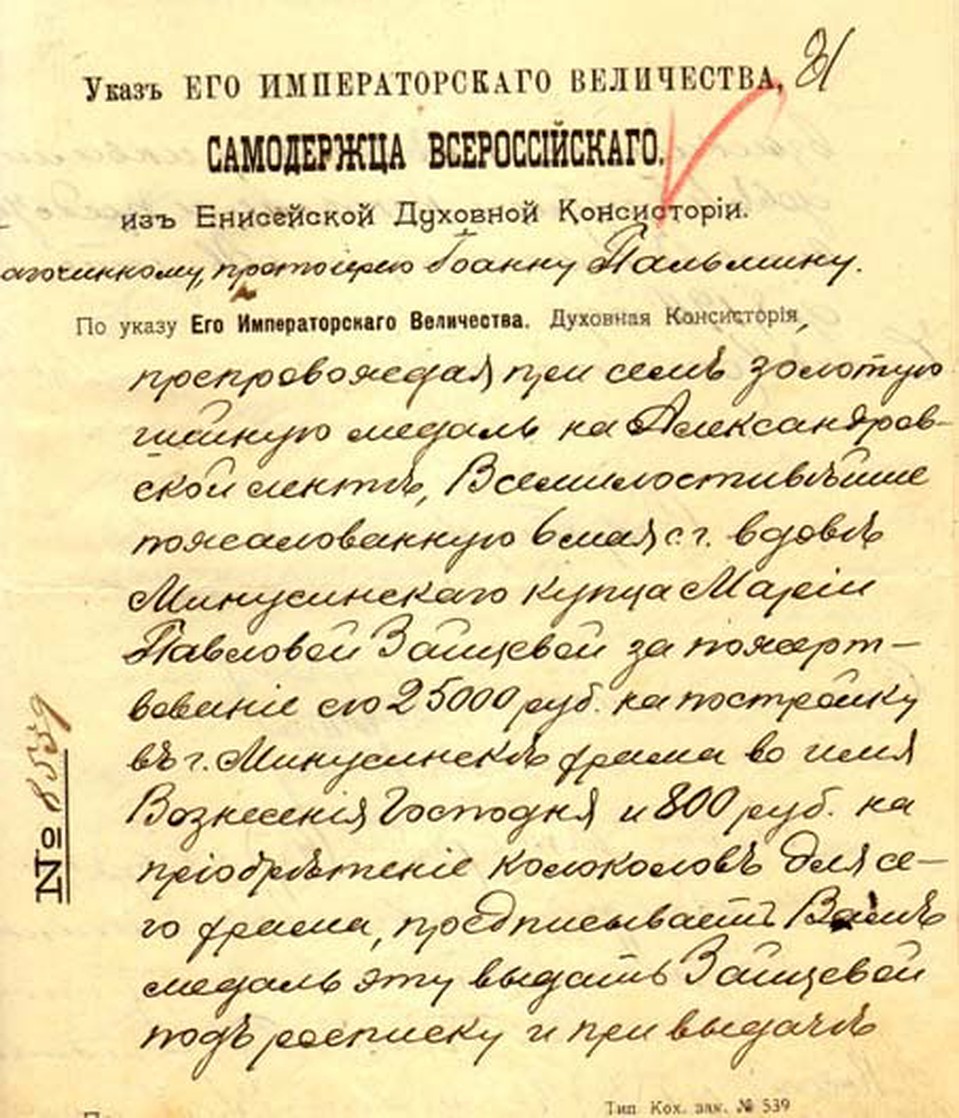 81
Указъ ЕГО ИМПЕРАТОРСКАГО ВЕЛИЧЕСТВА,
САМОДЕРЖЦА ВСЕРОССІЙСКАГО,
изъ Енисейской Духовной Консисторіи.
агочинному, протоіерею Іоанну Пальмину.
По указу Его Императорскаго Величества, Духовная Консисторія,
препровождая при семъ золотую
шейную медаль на Александров-
ской лентѣ, Всемилостивѣйше
пожалованную 6 мая с. г. вдовѣ
Минусинскаго купца Маріи
Павловой Зайцевой за пожерт-
вованіе ею 25000 руб. на постройку
въ г. Минусинскѣ храма во имя
Вознесенія Господня и 800 руб. на
пріобрѣтеніе колоколовъ для се-
го храма, предписываетъ Вамъ
медаль эту выдать Зайцевой
подъ росписку и при выдачѣ
№ 8559
Тип. Кох. зак. № 539